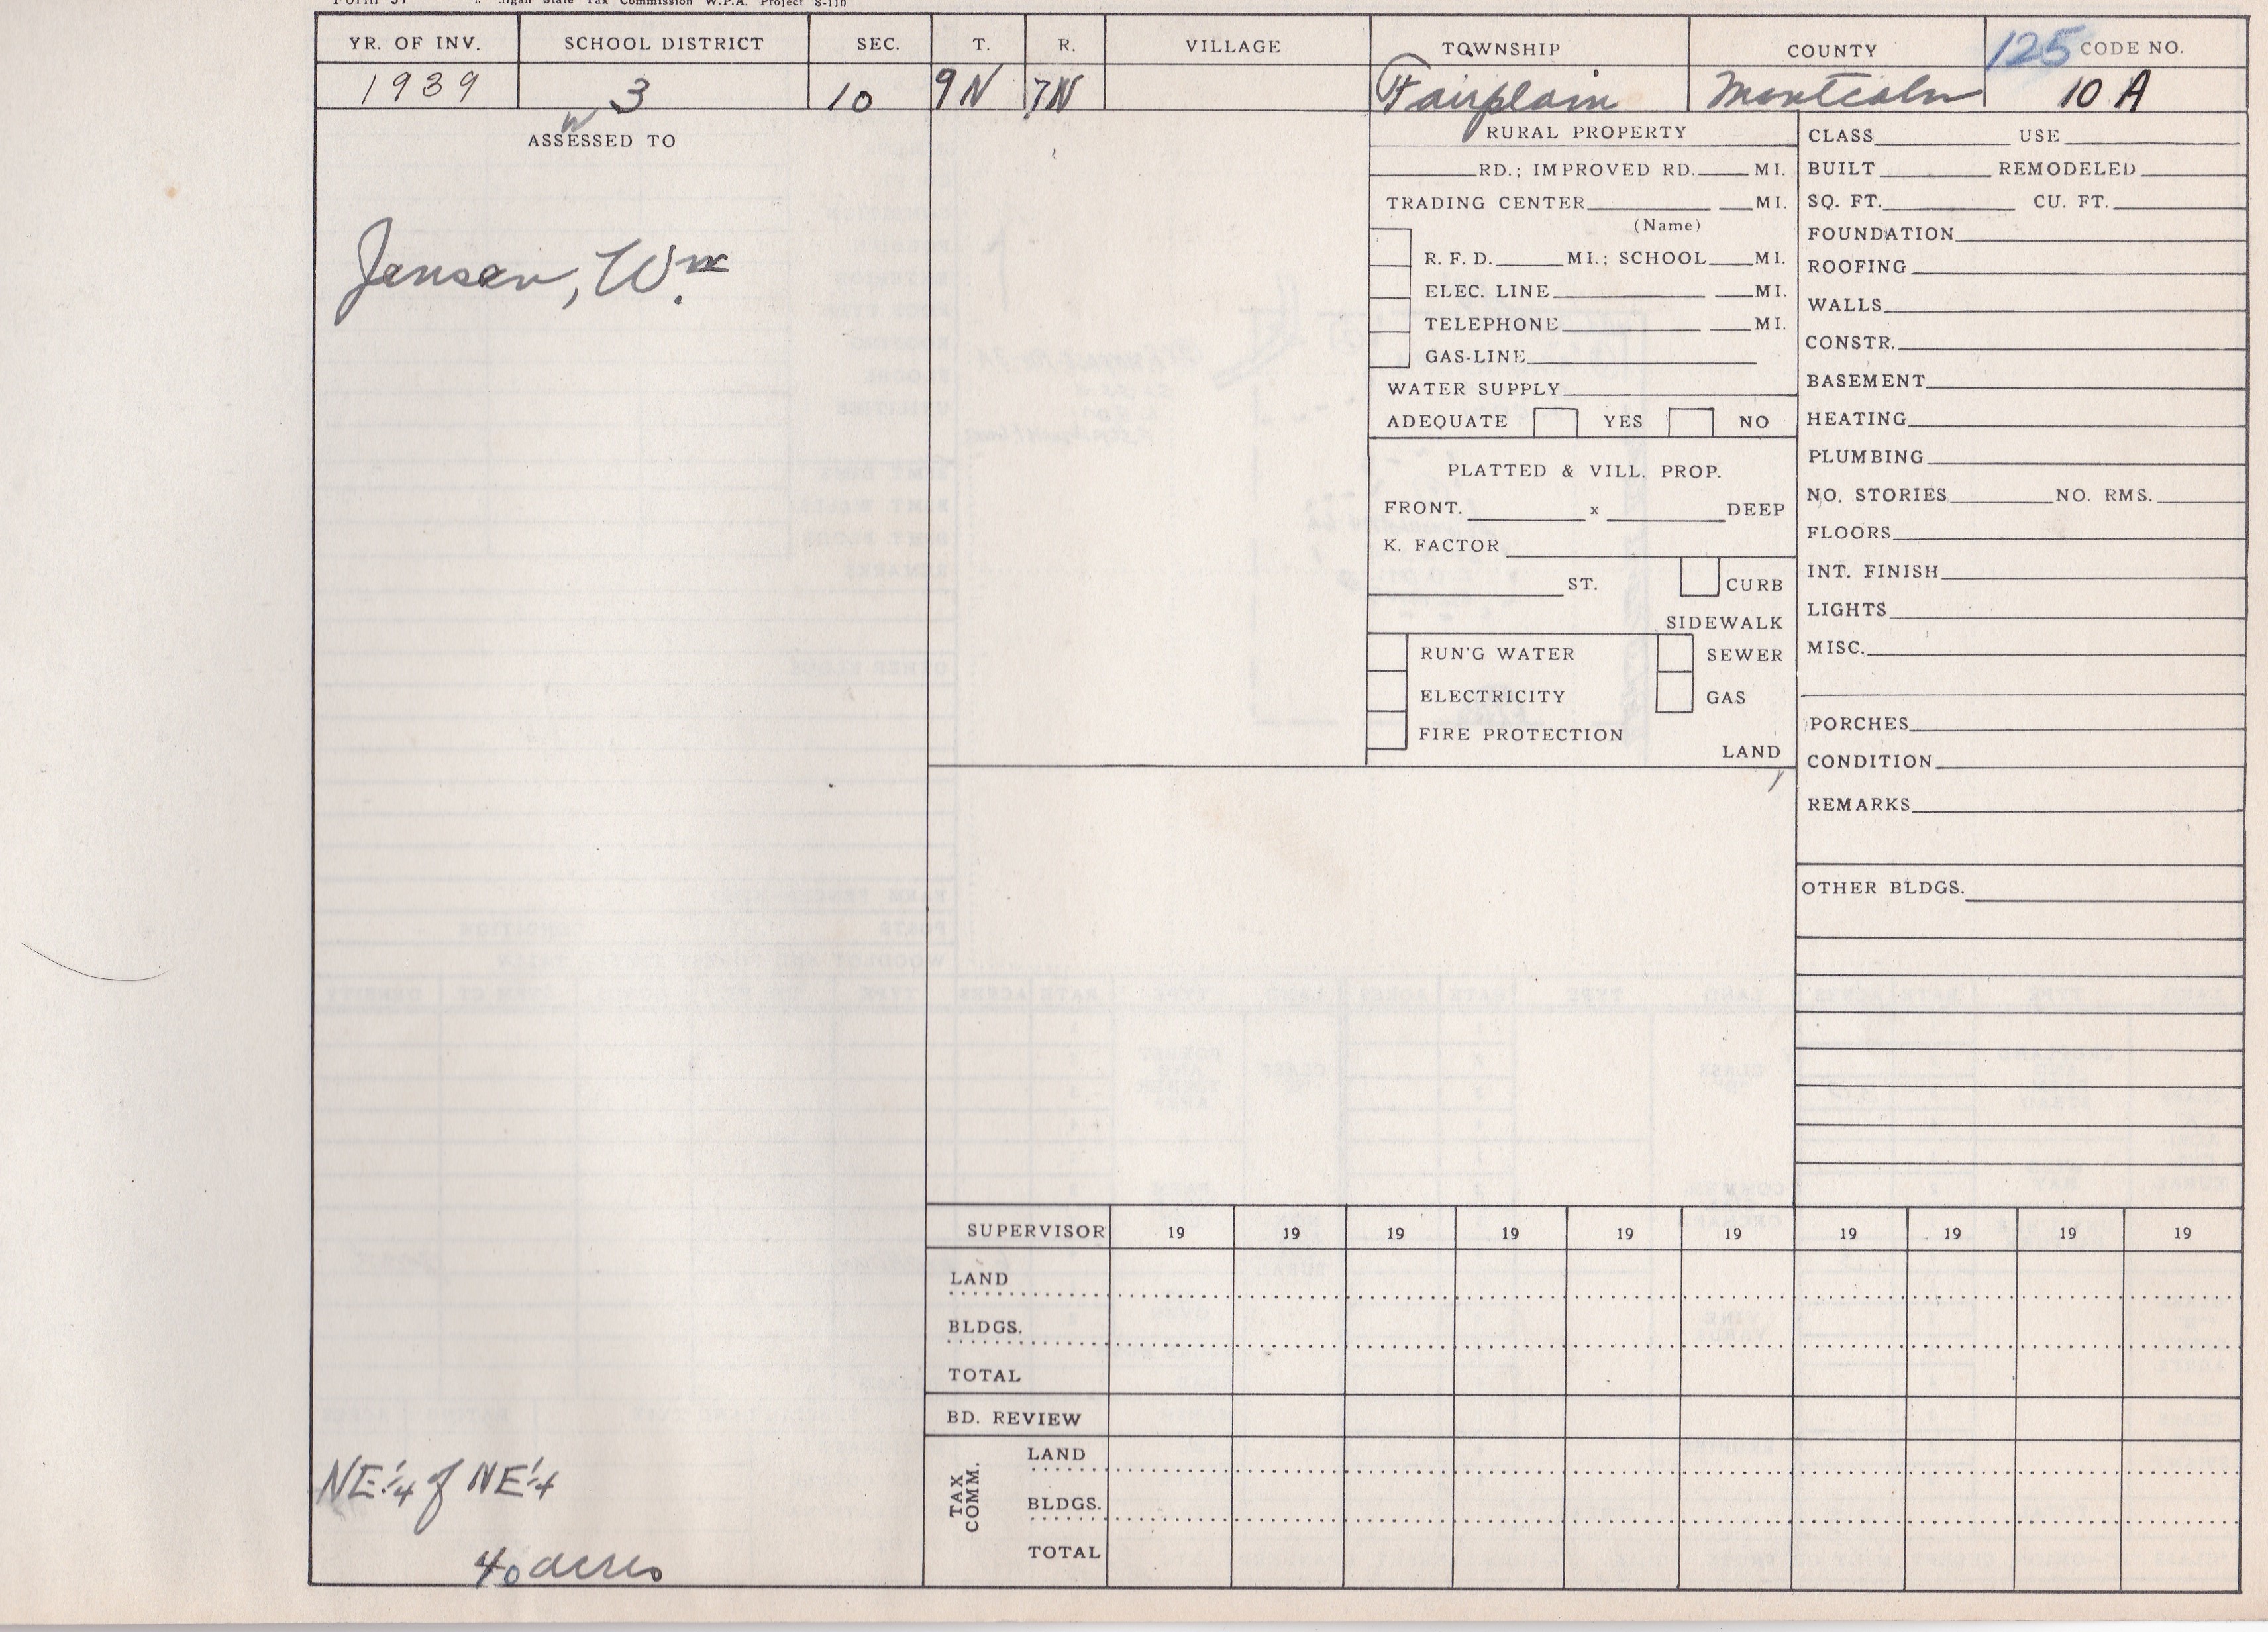 Form 31 Michigan State Tax Commission W.P.A. Project S-110
YR. OF INV. SCHOOL DISTRICT SEC. T. R. VILLAGE TOWNSHIP COUNTY 125 CODE NO.
1939 3 10 9N 7N Fairplain Montcalm 10 A
ASSESSED TO
Jensen, Wm
NE 1/4 of NE 1/4
40 acres
RURAL PROPERTY
RD.; IMPROVED RD. MI.
TRADING CENTER MI.
(Name)
R. F. D. MI.; SCHOOL MI.
ELEC. LINE MI.
TELEPHONE MI.
GAS-LINE
WATER SUPPLY
ADEQUATE YES NO
PLATTED & VILL. PROP.
FRONT. x DEEP
K. FACTOR
ST. CURB
SIDEWALK
RUN'G WATER SEWER
ELECTRICITY GAS
FIRE PROTECTION
LAND
CLASS USE
BUILT REMODELED
SQ. FT. CU. FT.
FOUNDATION
ROOFING
WALLS
CONSTR.
BASEMENT
HEATING
PLUMBING
NO. STORIES NO. RMS.
FLOORS
INT. FINISH
LIGHTS
MISC.
PORCHES
CONDITION
REMARKS
OTHER BLDGS.
SUPERVISOR 19 19 19 19 19 19 19 19 19 19
LAND
BLDGS.
TOTAL
BD. REVIEW
TAX COMM.
LAND
BLDGS.
TOTAL